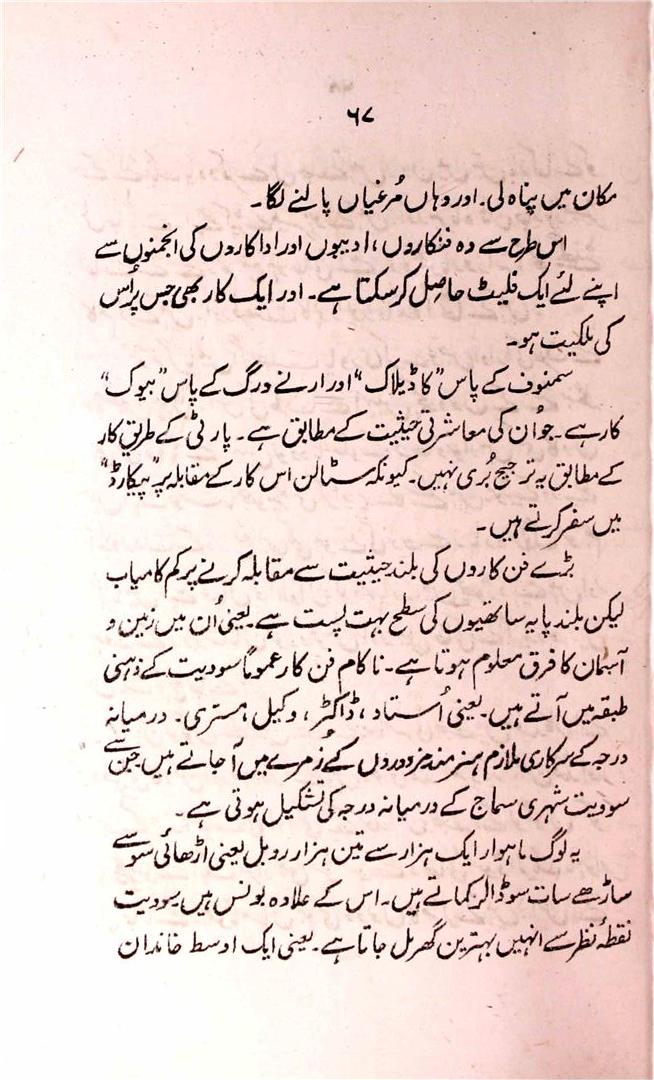 ۶۷
مکان میں پناہ لی۔ اور وہاں مُرغیاں پالنے لگا۔
اس طرح سے وہ فنکاروں، ادیبوں اور اداکاروں کی انجمنوں سے
اپنے لئے ایک فلیٹ حاصل کر سکتا ہے۔ اور ایک کار بھی جس پر اُس
کی ملکیت ہو۔
سمنوف کے پاس "کاڈیلاک" اور ارنے درگ کے پاس "بیوک"
کار ہے۔ جو اُن کی معاشرتی حیثیت کے مطابق ہے۔ پارٹی کے طریق کار
کے مطابق یہ ترجیح بُری نہیں۔ کیونکہ سٹالن اس کار کے مقابلہ پر "پیکارڈ"
میں سفر کرتے ہیں۔
بڑے فن کاروں کی بلند حیثیت سے مقابلہ کرنے پر کم کامیاب
لیکن بلند پایہ ساتھیوں کی سطح بہت پست ہے۔ یعنی اُن میں زمین و
آسمان کا فرق معلوم ہوتا ہے۔ ناکام فن کار عموماً سوویت کے ذہنی
طبقہ میں آتے ہیں۔ یعنی اُستاد، ڈاکٹر، وکیل مستری۔ درمیانہ
درجہ کے سرکاری ملازم ہنرمند مزدوروں کے زُمرے میں آ جاتے ہیں جن سے
سوویت شہری سماج کے درمیانہ درجہ کی تشکیل ہوتی ہے۔
یہ لوگ ماہوار ایک ہزار سے تین ہزار روبل یعنی اڑھائی سو سے
ساڑھے سات سو ڈالر کماتے ہیں۔ اس کے علاوہ بونس ہیں سوویت
نقطۂ نظر سے انہیں بہترین گھر مل جاتا ہے۔ یعنی ایک اوسط خاندان